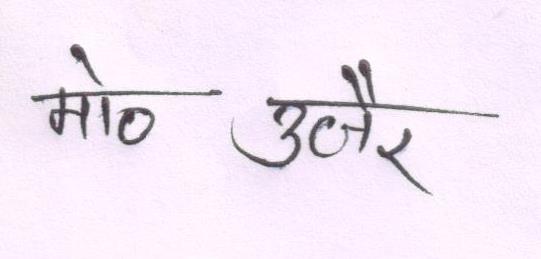 मो० उजैर